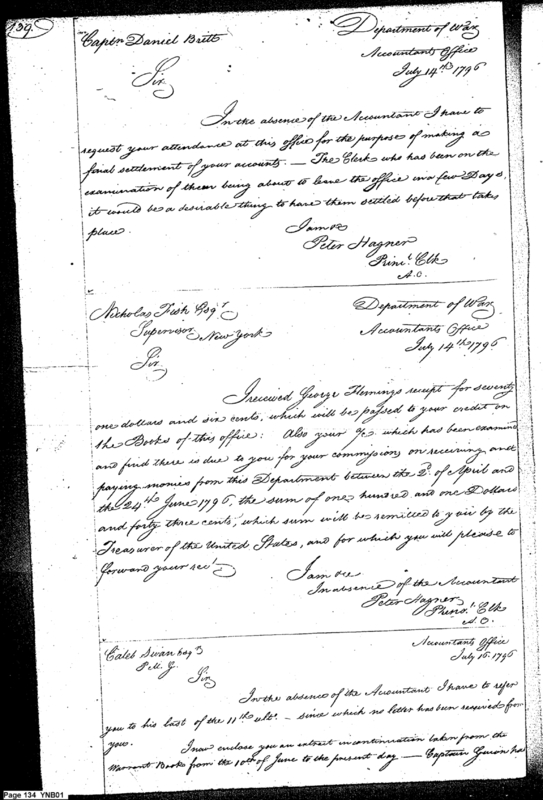 139.
Captn Daniel Britt
Department of War
Accountants Office
July 14th 1796
Sir
In the absence of the Accountant I have to
request your attendance at this office for the purpose of making a
final settlement of your accounts. — The Clerk who has been on the
examination of them being about to leave the office in a few Days,
it would be a desirable thing to have them settled before that takes
place.
I am &c
Peter Hagner
Prinl. Clk
A.O.
Nicholas Fish Esqr
Supervisor New York
Department of War
Accountants Office
July 14th 1796
Sir
I received George Flemings receipt for seventy
one dollars and six cents, which will be passed to your credit on
the Books of this office: Also your a/c which has been examined
and find there is due to you for your commissions on receiving and
paying monies from this Department between the 2d. of April and
the 24th June 1796, the sum of one hundred and one Dollars
and forty three cents, which sum will be remitted to you by the
Treasurer of the United States, and for which you will please to
forward your rect.
I am &c
In absence of the Accountant
Peter Hagner
Prinl. Clk
A.O.
Caleb Swan Esq
P.M.G.
Accountants Office
July 15. 1796
Sir
In the absence of the Accountant I have to refer
you to his last of the 11th ulto. — since which no letter has been received from
you.
I now enclose you an extract in continuation taken from the
Warrant Book from the 10th of June to the present day — Captain Guion has
Page 134 YNB01